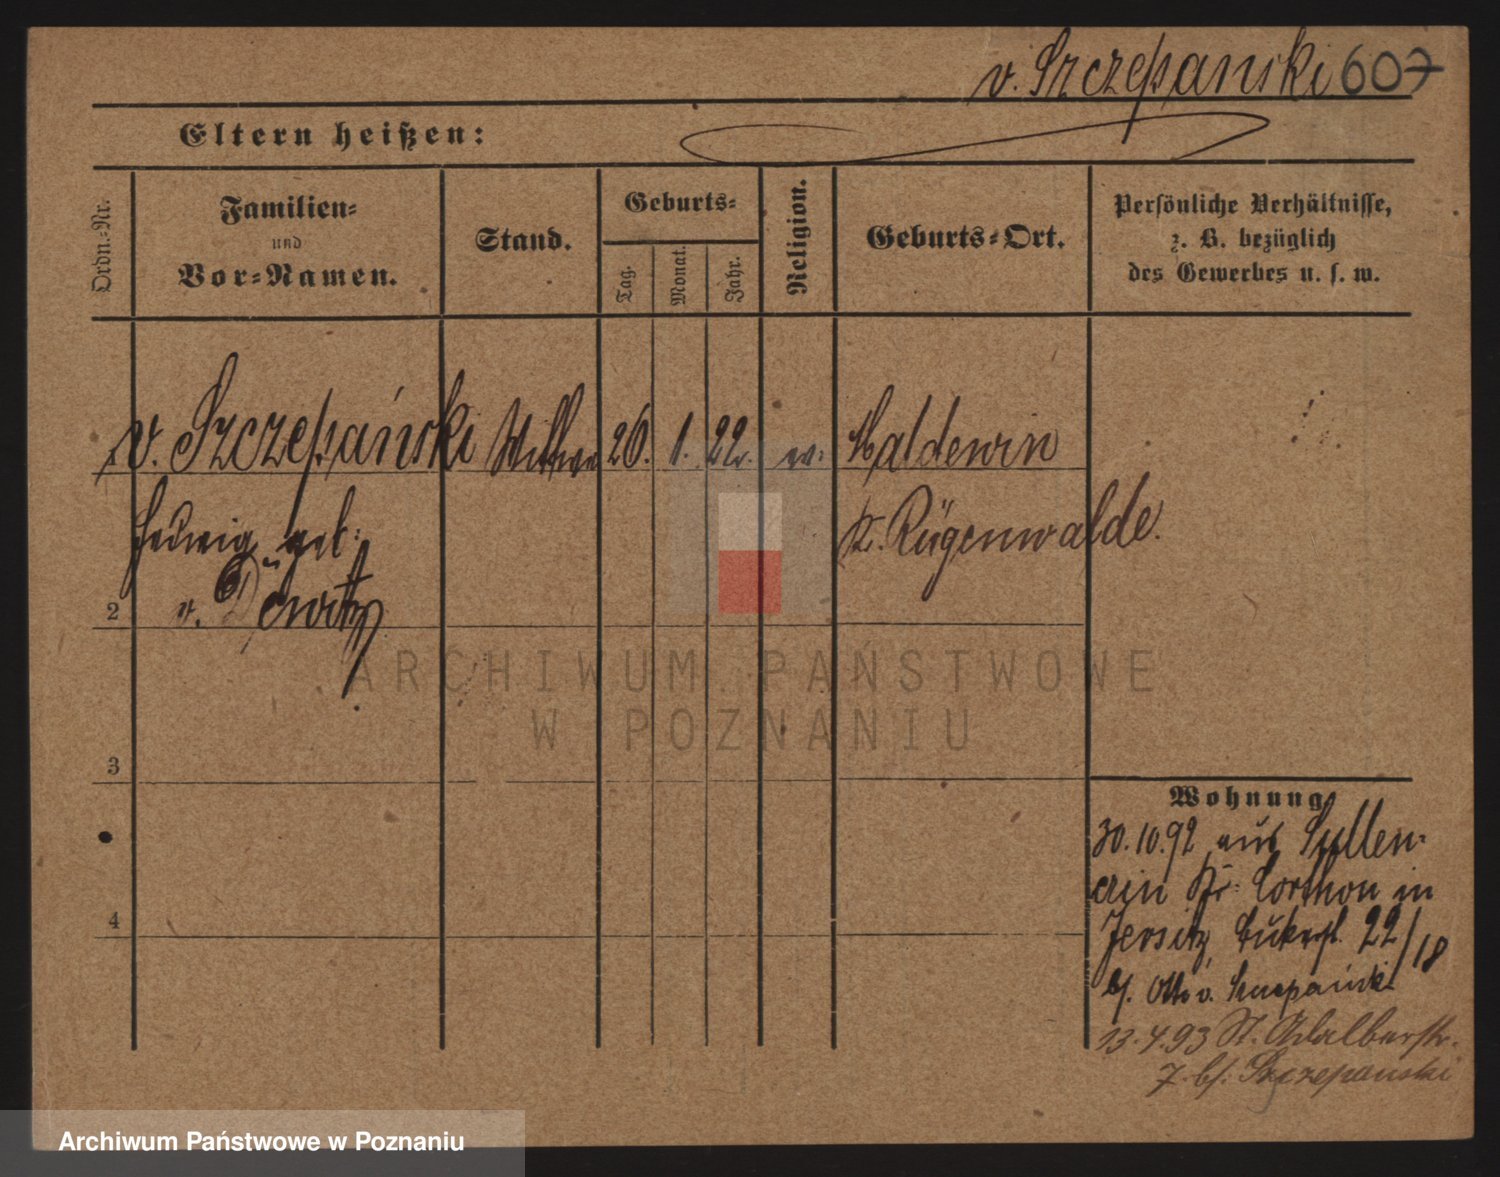 v. Szczepanski 607
Eltern heißen:
Ordn.-Nr.
Familien-
und
Vor-Namen.
Stand.
Geburts-
Tag.
Monat.
Jahr.
Religion.
Geburts-Ort.
Persönliche Verhältnisse,
z. B. bezüglich
des Gewerbes u. s. w.
v. Szczepański Wittwe 26. 1. 22. Maldewin
Hedwig geb:
v. Dewitz
Kr. Rügenwalde.
2
3
4
Wohnung
30.10.92 aus
in
Jersitz 22/18
b/. Otto v. Szczepański
13.4.93 St. Adalbertstr.
7. b/. Szczepanski
ARCHIWUM PAŃSTWOWE
W POZNANIU
Archiwum Państwowe w Poznaniu